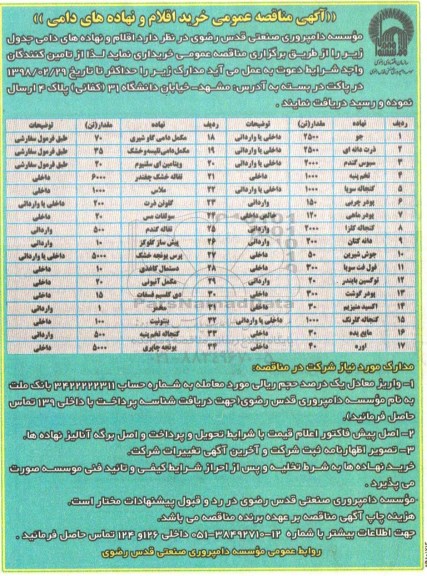 ((آگهی مناقصه عمومی خرید اقلام و نهاده های دامی))
مؤسسه دامپروری صنعتی قدس رضوی در نظر دارد اقلام و نهاده های دامی جدول
زیر را از طریق برگزاری مناقصه عمومی خریداری نماید لذا از تامین کنندگان
واجد شرایط دعوت به عمل می آید مدارک زیر را حداکثر تا تاریخ ۱۳۹۸/۰۲/۲۹
در پاکت در بسته به آدرس: مشهد-خیابان دانشگاه ۳۱ (کفائی) پلاک ۲ ارسال
نموده و رسید دریافت نمایند.
ردیف نهاده مقدار(تن) توضیحات ردیف نهاده مقدار(تن) توضیحات
۱ جو ۲۵۰۰ داخلی یا وارداتی ۱۸ مکمل دامی گاو شیری ۷۰ طبق فرمول سفارشی
۲ ذرت دانه ای ۲۵۰۰ داخلی یا وارداتی ۱۹ مکمل دامی تلیسه و خشک ۳۵ طبق فرمول سفارشی
۳ سبوس گندم ۲۰۰۰ داخلی یا وارداتی ۲۰ ویتامین ای سلنیوم ۲۰ طبق فرمول سفارشی
۴ تخم پنبه ۱۰۰۰ داخلی ۲۱ تفاله خشک چغندر ۶۰۰۰ داخلی
۵ کنجاله سویا ۱۰۰۰ داخلی یا وارداتی ۲۲ ملاس ۱۰۰۰ داخلی
۶ پودر چربی ۱۵۰ وارداتی ۲۳ گلوتن ذرت ۲۰۰ داخلی یا وارداتی
۷ پودر ماهی ۱۲۰ خالص داخلی ۲۴ سولفات مس ۲۰ داخلی
۸ کنجاله کلزا ۲۰۰۰ وارداتی ۲۵ تفاله گندم ۵۰۰ وارداتی
۹ دانه کتان ۲۰۰ وارداتی ۲۶ پیش ساز گلوکز ۱۰ وارداتی
۱۰ جوش شیرین ۵۰ داخلی ۲۷ پرس یونجه خشک ۵۰۰۰ داخلی یا وارداتی
۱۱ فول فت سویا ۳۰۰ داخلی ۲۸ دستمال کاغذی ۱۰ داخلی
۱۲ توکسین بایندر ۲۰ وارداتی ۲۹ مکمل آنیونی ۲۰ داخلی
۱۳ پودر گوشت ۳۰۰ داخلی ۳۰ دی کلسیم فسفات ۱۵ داخلی
۱۴ اکسید منیزیم داخلی ۳۱ مخمر ۱ وارداتی
۱۵ کنجاله گلرنگ ۱۰۰۰ داخلی یا وارداتی ۳۲ بنتونیت ۱۰۰ داخلی
۱۶ مایع پده ۳۰ داخلی ۳۳ کنجاله تخم پنبه ۵۰۰ وارداتی
۱۷ اوره ۴۰ داخلی ۳۴ یونجه چاپری ۵۰۰۰ داخلی
مدارک مورد نیاز شرکت در مناقصه:
۱- واریز معادل یک درصد حجم ریالی مورد معامله به شماره حساب ۳۴۲۲۲۲۲۳۱۱ بانک ملت
به نام مؤسسه دامپروری قدس رضوی(جهت دریافت شناسه پرداخت با داخلی ۱۳۹ تماس
حاصل فرمائید).
۲- اصل پیش فاکتور اعلام قیمت با شرایط تحویل و پرداخت و اصل برگه آنالیز نهاده ها.
۳- تصویر اظهارنامه ثبت شرکت و آخرین آگهی تغییرات شرکت.
خرید نهاده ها به شرط تخلیه و پس از احراز شرایط کیفی و تائید فنی موسسه صورت
می پذیرد.
مؤسسه دامپروری صنعتی قدس رضوی در رد و قبول پیشنهادات مختار است.
هزینه چاپ آگهی مناقصه بر عهده برنده مناقصه می باشد.
جهت اطلاعات بیشتر با شماره ۱۲-۳۸۴۹۲۷۱۰-۰۵۱ داخلی ۱۲۶ و ۱۲۴ تماس حاصل فرمائید.
روابط عمومی مؤسسه دامپروری صنعتی قدس رضوی